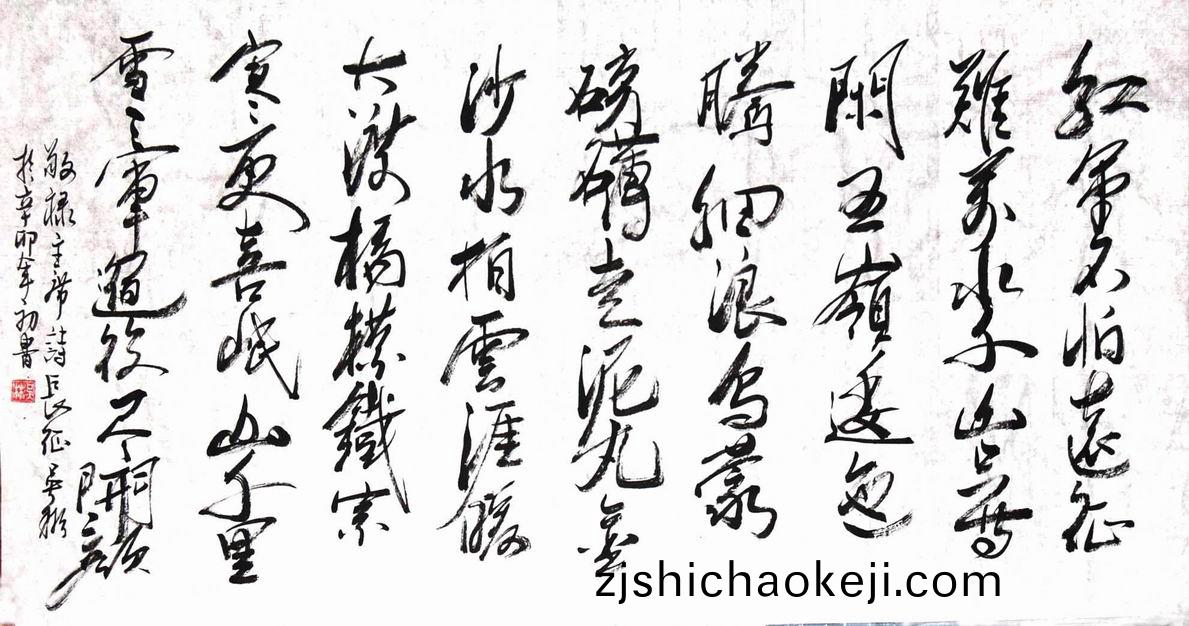 紅軍不怕遠征
難萬水千山只等
閑五嶺逶迤
騰細浪烏蒙
磅礴走泥丸金
沙水拍雲涯暖
大渡橋橫鐵索
寒更喜岷山千里
雪三軍過後尽開顔
敬録主席詩長征
於辛卯年初書
zjshichaokeji.com